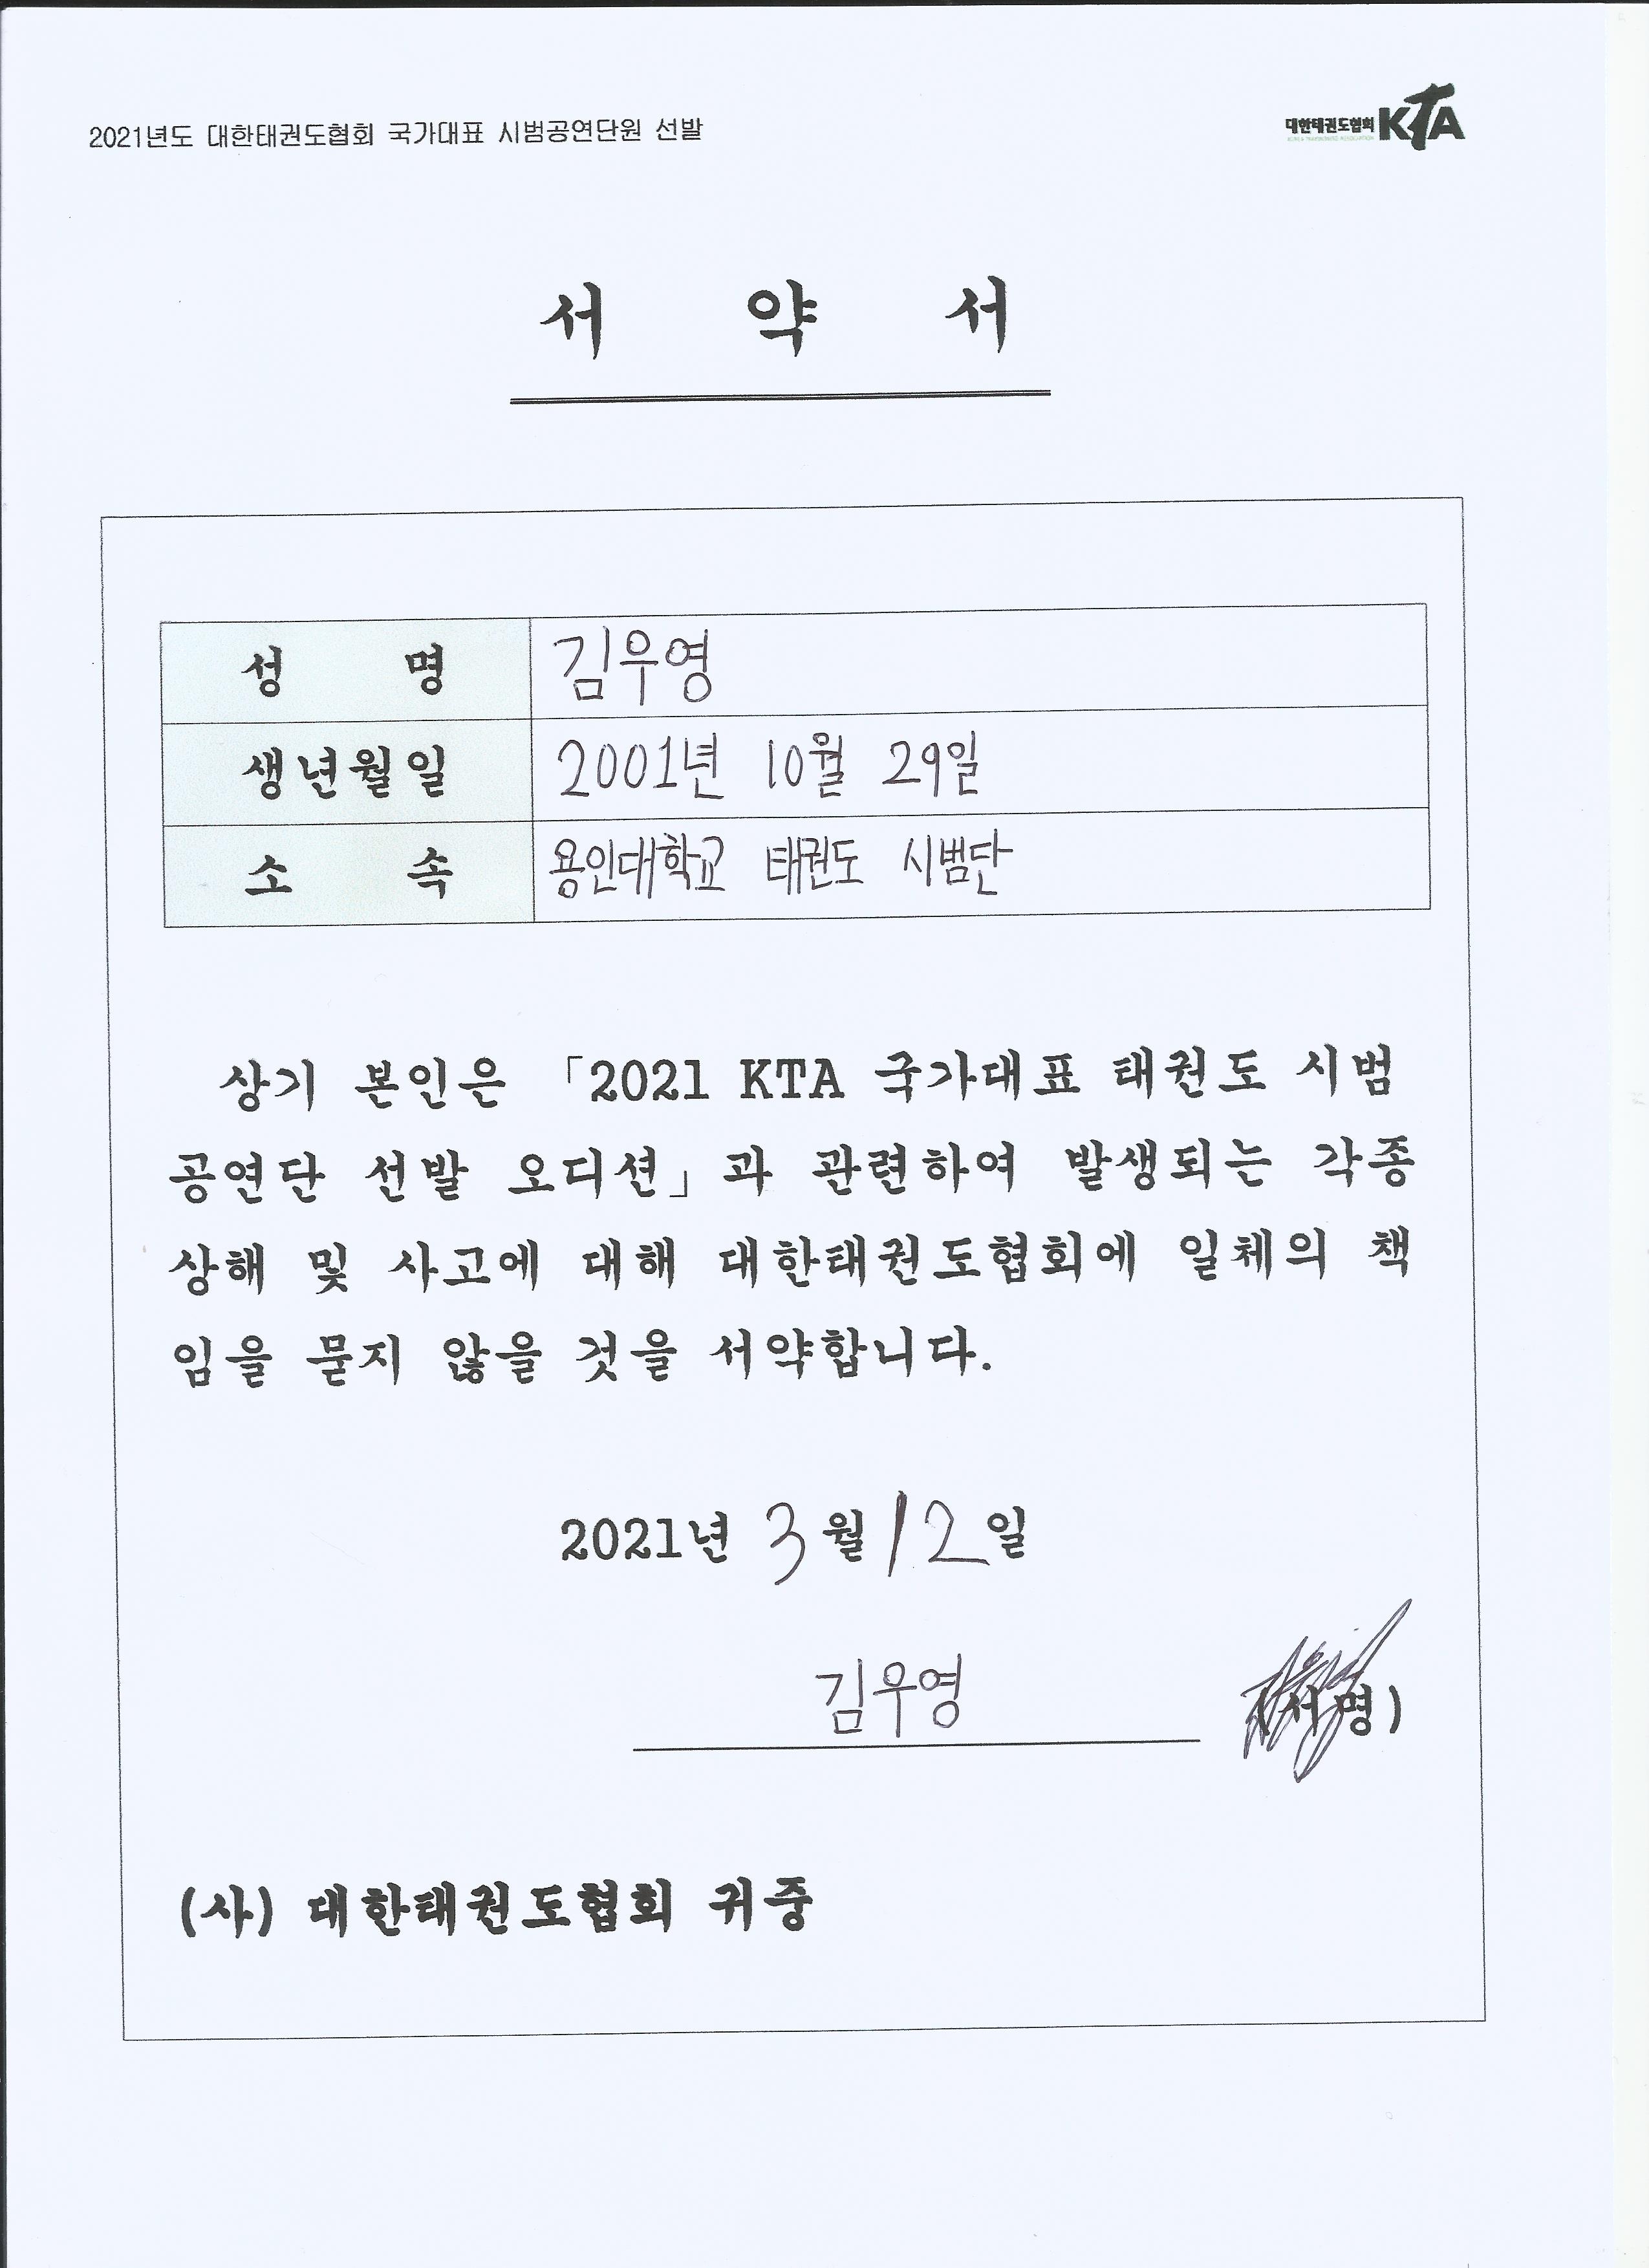 2021년도 대한태권도협회 국가대표 시범공연단원 선발
대한태권도협회 KTA
서 약 서
성 명 김우영
생년월일 2001년 10월 29일
소 속 용인대학교 태권도 시범단
상기 본인은 「2021 KTA 국가대표 태권도 시범
공연단 선발 오디션」과 관련하여 발생되는 각종
상해 및 사고에 대해 대한태권도협회에 일체의 책
임을 묻지 않을 것을 서약합니다.
2021년 3월 12일
김우영 (서명)
(사) 대한태권도협회 귀중